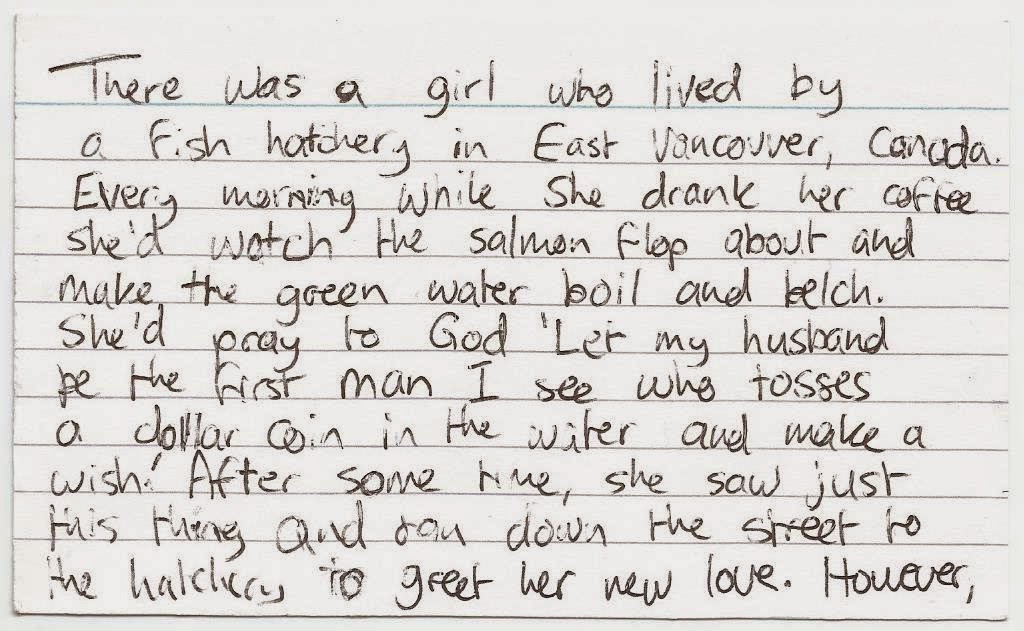 There was a girl who lived by
a fish hatchery in East Vancouver, Canada.
Every morning while she drank her coffee
she'd watch the salmon flop about and
make the green water boil and belch.
She'd pray to God 'Let my husband
be the first man I see who tosses
a dollar coin in the water and make a
wish.' After some time, she saw just
this thing and ran down the street to
the hatchery to greet her new love. However,